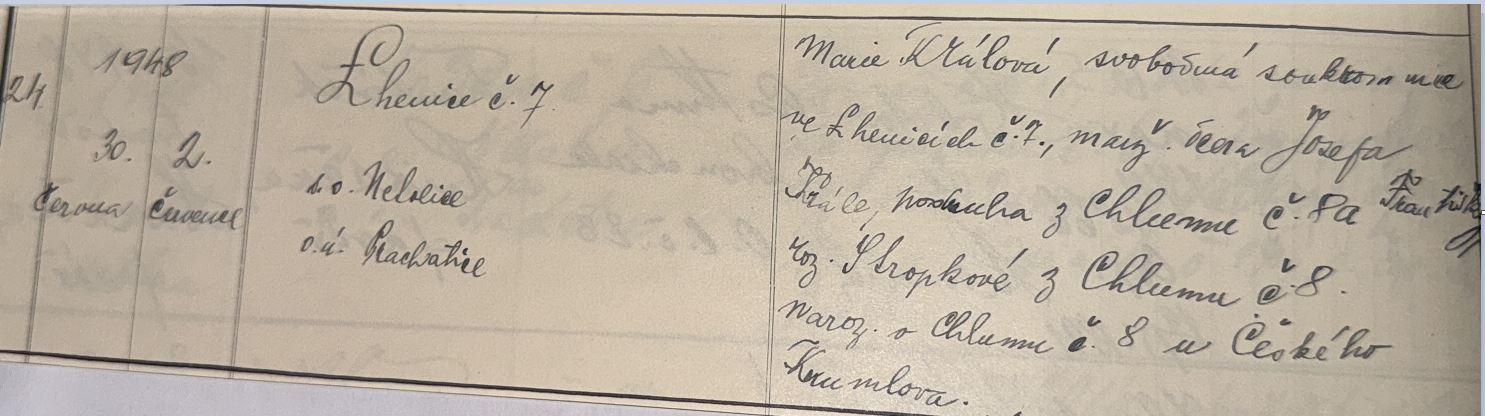 24
1948
30. 2.
června července
Lhenice č. 7.
s. o. Netolice
o. ú. Prachatice
Marie Králová, svobodná soukromnice
ve Lhenicích č. 7., manž. dcera Josefa
Krále, podruha z Chlumu č. 8 a Františky
roz. Stropkové z Chlumu č. 8.
naroz. v Chlumu č. 8 u Českého
Krumlova.